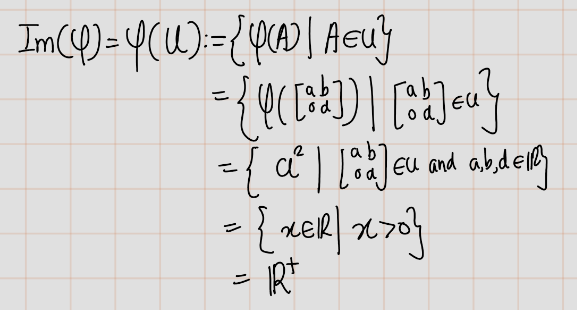 Im(φ)=φ(U):={φ(A)|A∈U}
={φ([a b 0 d])|[a b 0 d]∈U}
={a²|[a b 0 d]∈U and a,b,d∈ℝ}
={x∈ℝ|x>0}
=ℝ⁺